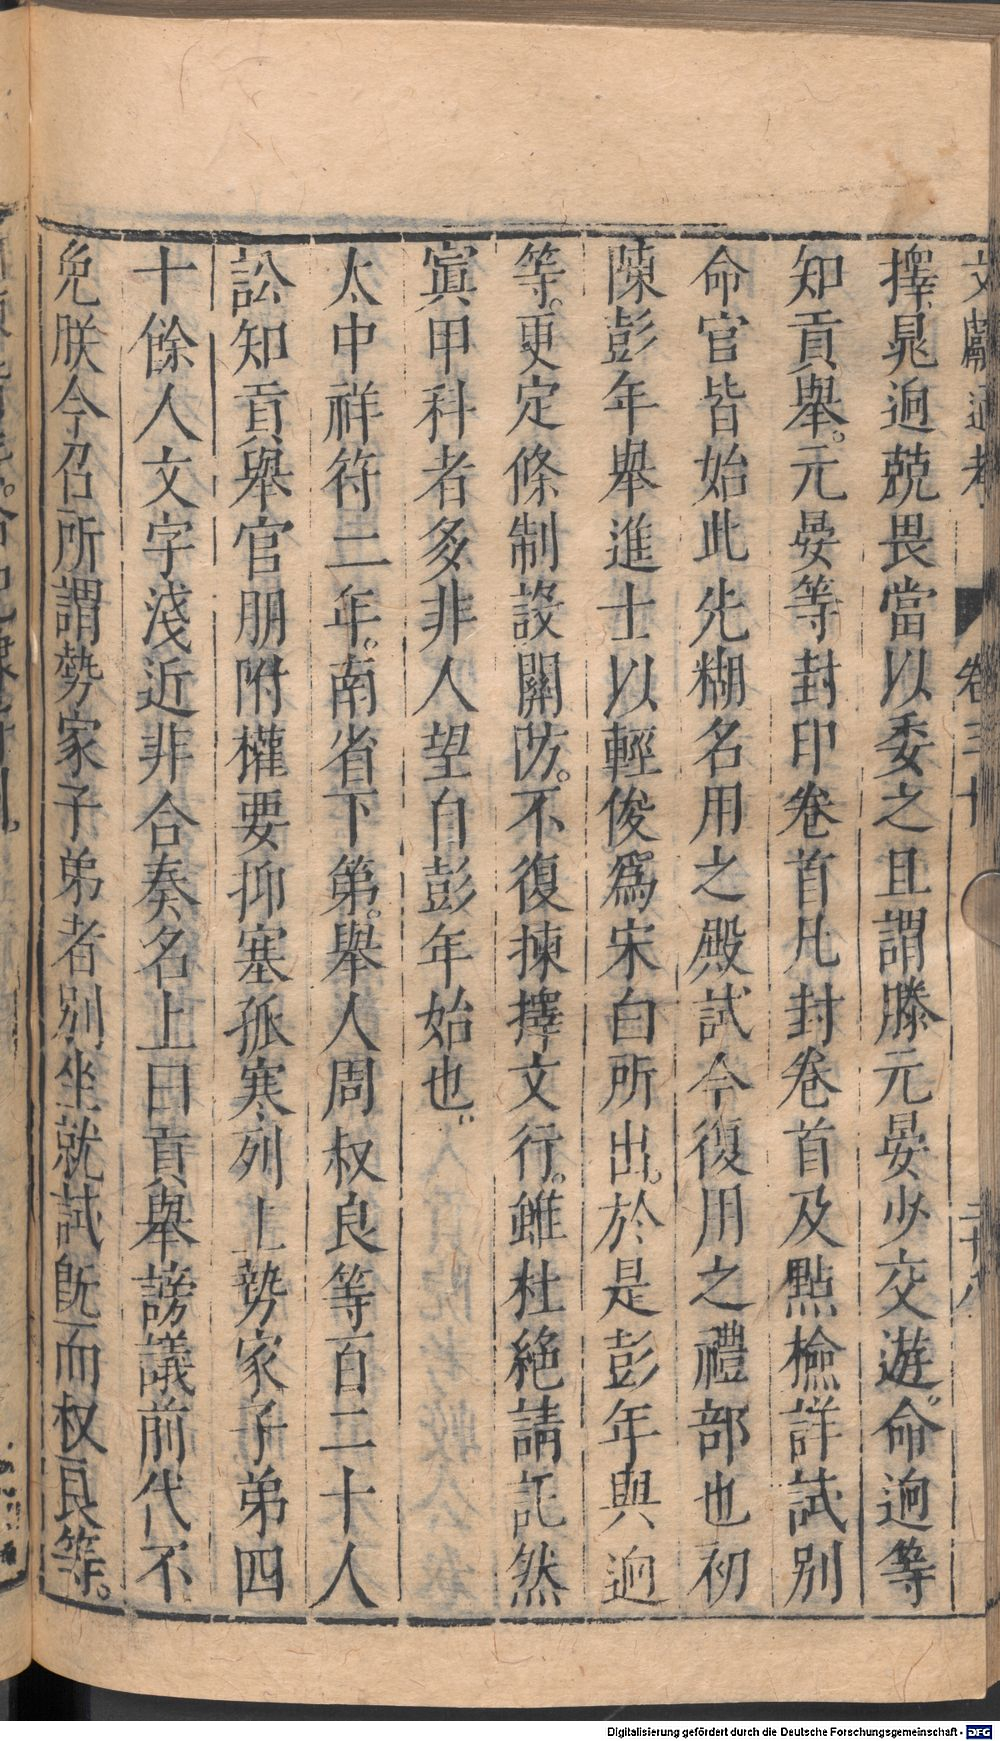 文獻通考 卷三十 二十八
擇晁迥兢畏當以委之且謂滕元晏少交遊命迥等
知貢舉元晏等封印卷首凡封卷首及點檢詳試別
命官皆始此先糊名用之殿試今復用之禮部也初
陳彭年舉進士以輕俊爲宋白所出於是彭年與迥
等更定條制設關防不復揀擇文行雖杜絶請託然
寘甲科者多非人望自彭年始也
太中祥符二年南省下第舉人周叔良等百二十人
訟知貢舉官朋附權要抑塞孤寒列上勢家子弟四
十餘人文字淺近非合奏名上曰貢舉謗議前代不
免朕今召所謂勢家子弟者別坐就試既而叔良等
Digitalisierung gefördert durch die Deutsche Forschungsgemeinschaft - DFG